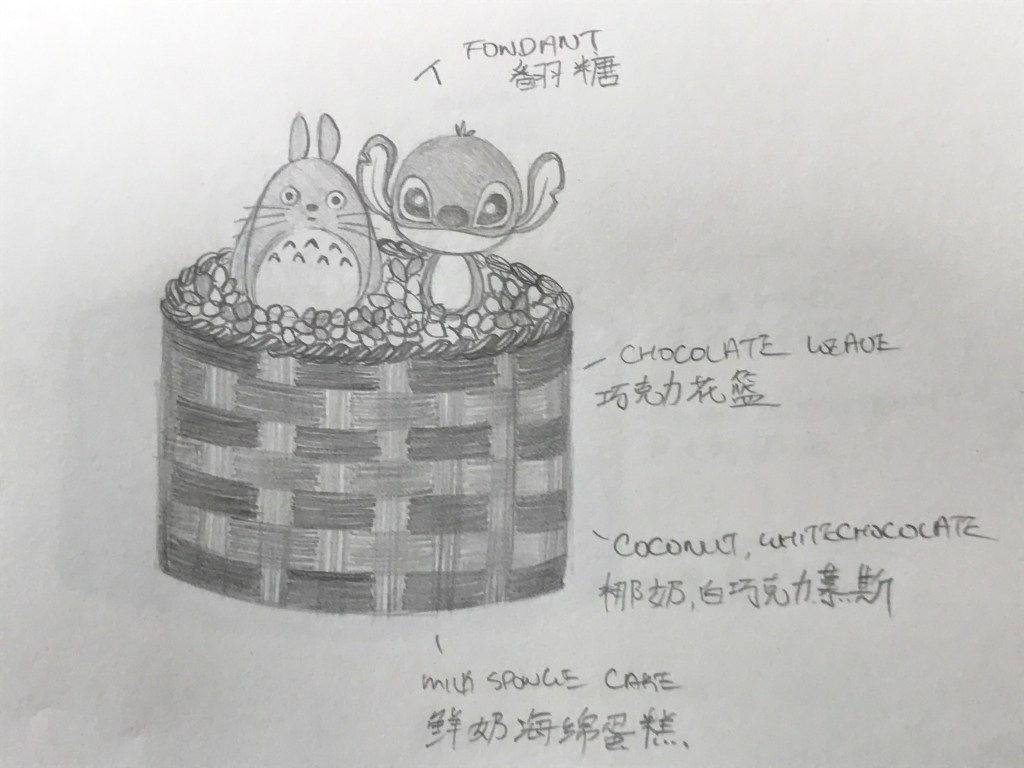 FONDANT
翻糖
CHOCOLATE WEAVE
巧克力花篮
COCONUT, WHITECHOCOLATE
椰奶,白巧克力慕斯
MILK SPONGE CAKE
鲜奶海绵蛋糕、